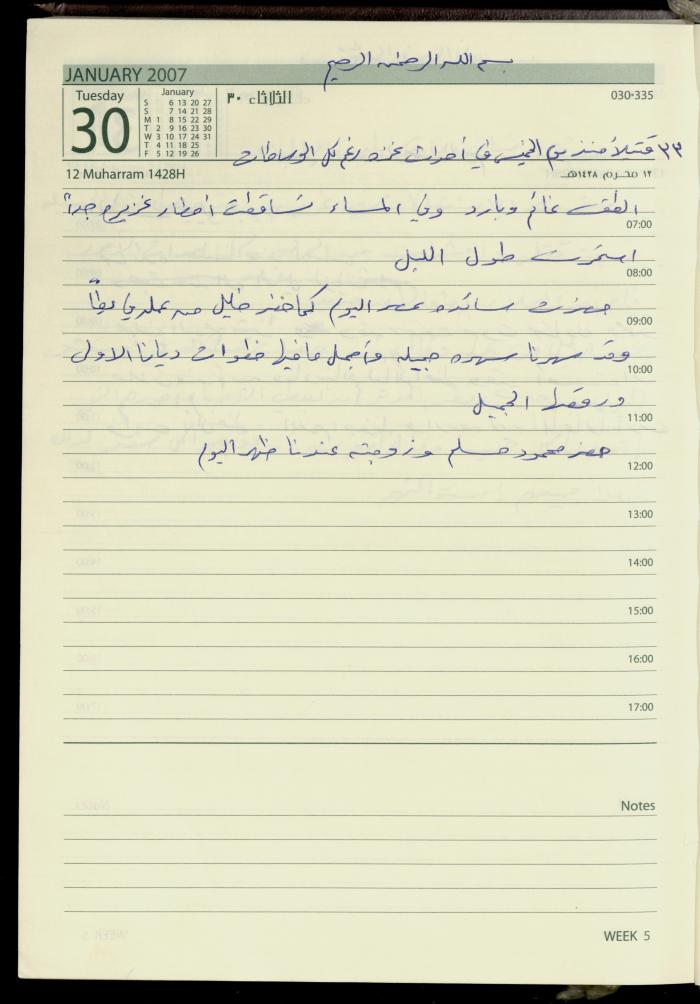 بسم الله الرحمن الرحيم
JANUARY 2007
Tuesday
30
January
S 6 13 20 27
S 7 14 21 28
M 1 8 15 22 29
T 2 9 16 23 30
W 3 10 17 24 31
T 4 11 18 25
F 5 12 19 26
الثلاثاء ٣٠
030-335
٣٣ قتيلاً منذ يوم الخميس في أحداث غزه رغم كل الوساطات
12 Muharram 1428H
١٢ محرم ١٤٢٨هـ
الطقس غائم وبارد وفي المساء تساقطت أمطار غزيره جداً
07:00
استمرت طول الليل
08:00
حضرت سائده عصر اليوم كما حضر خليل من عمله في
09:00
وقد سهرنا سهره جميله وأجمل ما فيها خطوات ديانا الاولى
10:00
ورقصها الجميل
11:00
حضر محمود مسلم وزوجته عندنا ظهر اليوم
12:00
13:00
14:00
15:00
16:00
17:00
Notes
WEEK 5